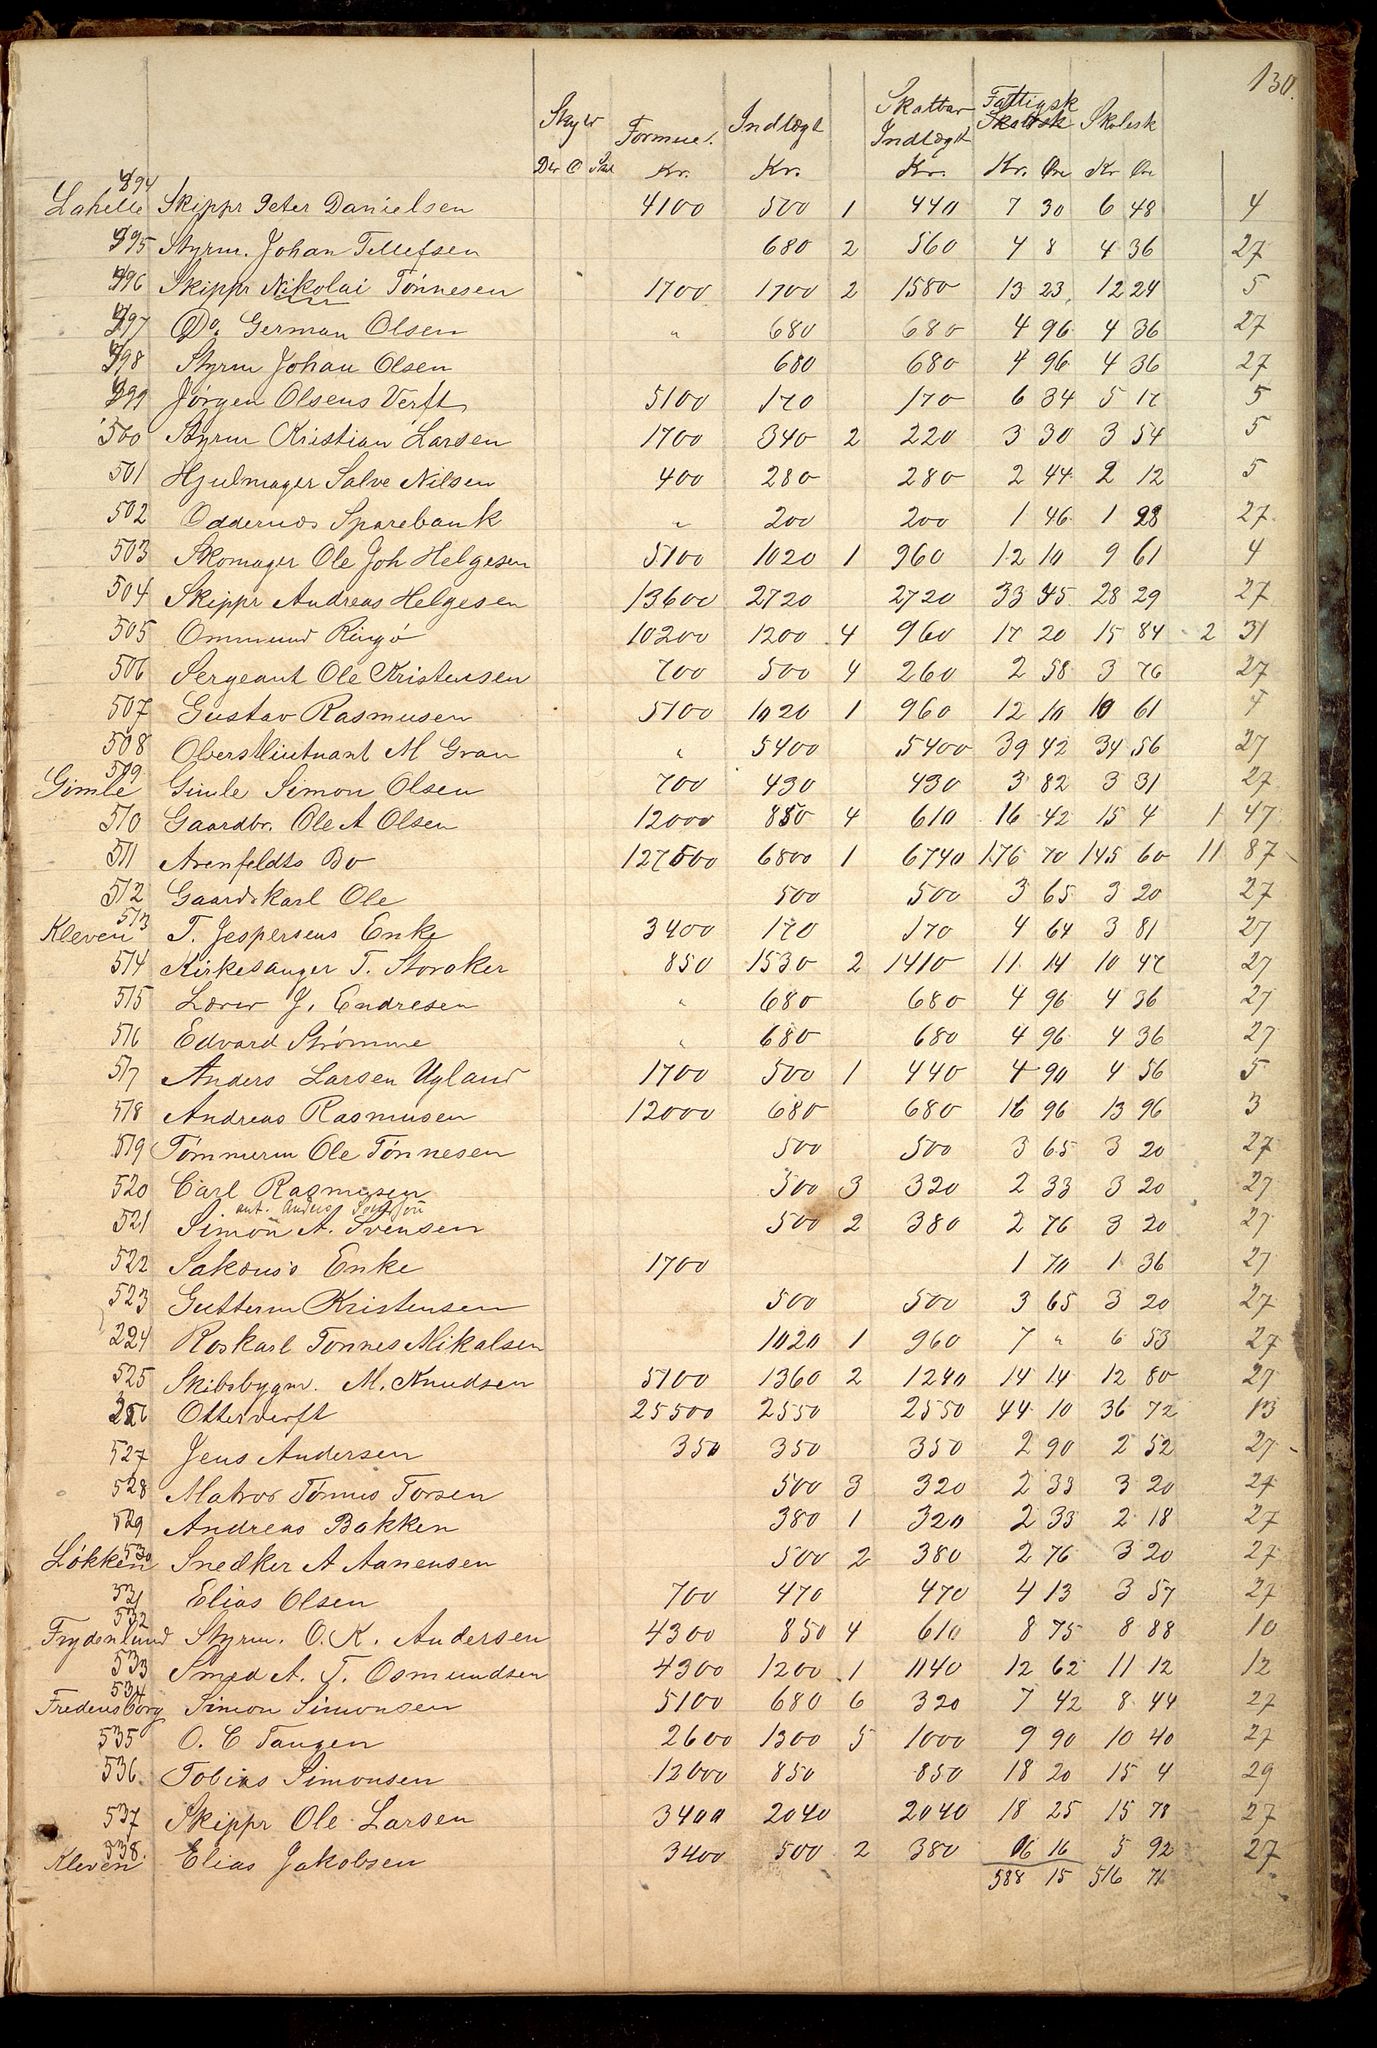 130.
Skyld Formue. Indtægt Skattbar Indtægt Fattigsk Skolesk
Dlr O Sk Kr. Kr. Kr. Kr. Øre Kr Øre
Lahelle 494 Skippr Peter Danielsen 4100 500 1 440 7 30 6 48 4
495 Styrm. Johan Tellefsen 680 2 560 4 8 4 36 27
496 Skippr Nikolai Tönnesen 1700 1700 2 1580 13 23 12 24 5
497 Do. German Olsen " 680 680 4 96 4 36 27
498 Styrm Johan Olsen 680 680 4 96 4 36 27
499 Jörgen Olsens Verft 5100 170 170 6 34 5 17 5
500 Styrm Kristian Larsen 1700 340 2 220 3 30 3 54 5
501 Hjulmager Salve Nilsen 400 280 280 2 44 2 12 5
502 Oddernæs Sparebank " 200 200 1 46 1 28 27
503 Skomager Ole Joh Helgesen 5100 1020 1 960 12 10 9 61 4
504 Skippr Andreas Helgesen 13600 2720 2720 33 45 28 29 27
505 Ommund Ringö 10200 1200 4 960 17 20 15 84 2 31
506 Sergeant Ole Kristensen 700 500 4 260 2 58 3 76 27
507 Gustav Rasmusen 5100 1020 1 960 12 10 10 61 4
508 Oberstliutnant M Gran " 5400 5400 39 42 34 56 27
Gimle 509 Gimle Simon Olsen 700 430 430 3 82 3 31 27
510 Gaardbr. Ole A Olsen 12000 850 4 610 16 42 15 4 1 47
511 Arenfeldts Bo 127500 6800 1 6740 176 70 145 60 11 87
512 Gaardskarl Ole 500 500 3 65 3 20 27
Kleven 513 T. Jespersens Enke 3400 170 170 4 64 3 81 27
514 Kirkesanger T. Storaker 850 1530 2 1410 11 14 10 47 27
515 Lærer J. Endresen " 680 680 4 96 4 36 27
516 Edvard Strömme " 680 680 4 96 4 36 27
517 Anders Larsen Ugland 1700 500 1 440 4 90 4 56 5
518 Andreas Rasmusen 12000 680 680 16 96 13 96 3
519 Tömmerm Ole Tönnesen 500 500 3 65 3 20 27
520 Carl Rasmusen 500 3 320 2 33 3 20 27
521 Simon A. Svensen 500 2 380 2 76 3 20 27
522 Sakæus's Enke 1700 1 70 1 36 27
523 Gutterm Kristensen 500 500 3 65 3 20 27
224 Roskarl Tonnes Mikalsen 1020 1 960 7 " 6 53 27
525 Skibsbygm. M. Knudsen 5100 1360 2 1240 14 14 12 80 27
526 Otterverft 25500 2550 2550 44 10 36 72 13
527 Jens Andersen 350 350 350 2 90 2 52 27
528 Matros Tönnes Torsen 500 3 320 2 33 3 20 27
529 Andreas Bakken 380 1 320 2 33 2 18 27
Lökken 530 Snedker A Aanensen 500 2 380 2 76 3 20 27
531 Elias Olsen 700 470 470 4 13 3 57 27
Frydenlund 532 Styrm. O. K. Andersen 4300 850 4 610 8 75 8 88 10
533 Smed A. T. Osmundsen 4300 1200 1 1140 12 62 11 12 12
Fredensborg 534 Simon Simonsen 5100 680 6 320 7 42 8 44 27
535 O. C Tangen 2600 1300 5 1000 9 90 10 40 27
536. Tobias Simonsen 12000 850 850 18 20 15 4 29
537 Skippr Ole Larsen 3400 2040 2040 18 25 15 78 27
Kleven 538. Elias Jakobsen 3400 500 2 380 6 16 5 92 27
588 15 516 71